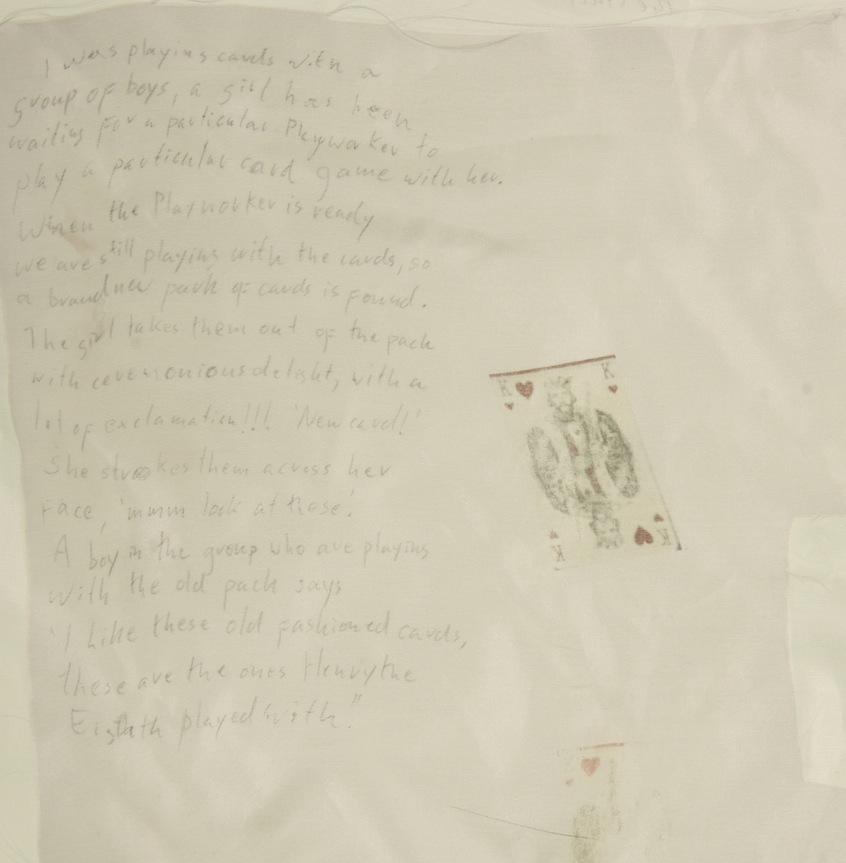 I was playing cards with a
group of boys, a girl has been
waiting for a particular Playworker to
play a particular card game with her.
When the Playworker is ready
we are still playing with the cards, so
a brand new pack of cards is found.
The girl takes them out of the pack
with ceremonious delight, with a
lot of exclamation!!! 'New card!'
She strokes them across her
Face, 'mmm look at these'.
A boy in the group who are playing
with the old pack says
'I like these old fashioned cards,
these are the ones Henry the
Eighth played with"
K K
K K